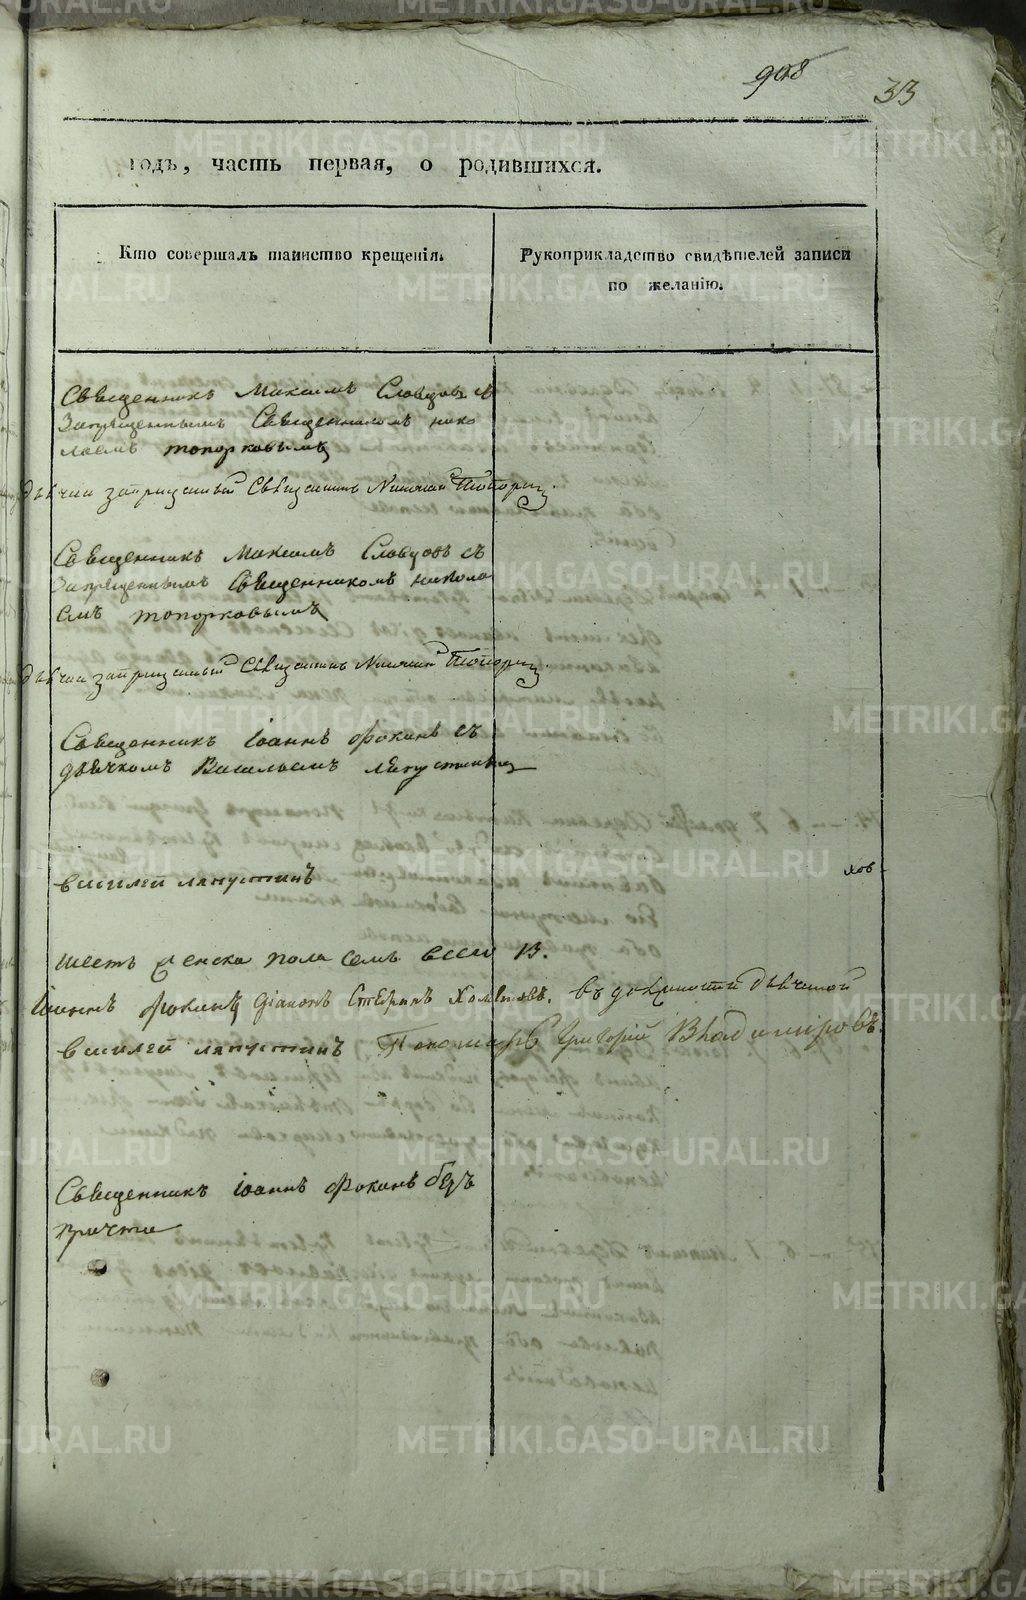 908
33
годъ, часть первая, о родившихся.
Кто совершалъ таинство крещенія.
Рукоприкладство свидѣтелей записи
по желанію.
Священникъ Максимъ Словцовъ съ
Запрещеннымъ Священникомъ нико
лаемъ топорковымъ
запрещенный Священникъ Николай Топорк
Священникъ Максимъ Словцовъ съ
Запрещеннымъ Священникомъ никола
емъ топорковымъ
запрещенный Священникъ Николай Топорк
Священникъ Іоаннъ Фокинъ съ
дьячкомъ Васильемъ
василей ляпустинъ
хов
шесть женска пола семь всего 13.
Іоаннъ Фокинъ діаконъ Стефанъ въ должности дьячка
василей ляпустинъ Пономарь Григорій Владимировъ.
Священникъ Іоаннъ Фокинъ безъ
причта
METRIKI.GASO-URAL.RU